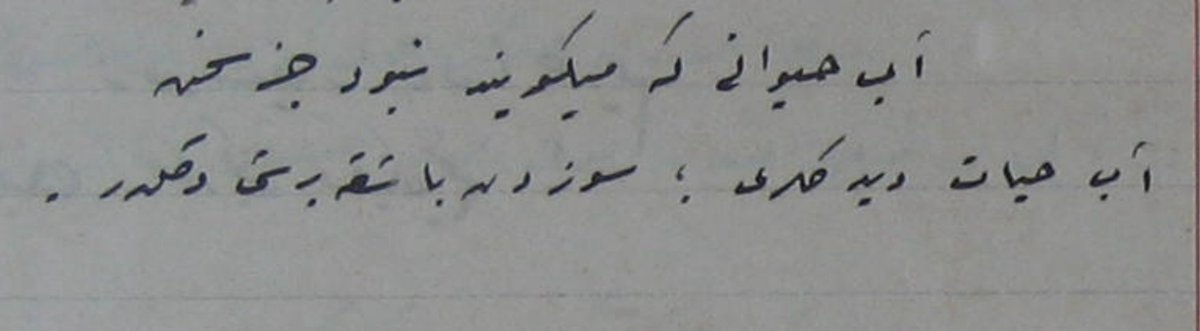 آب حیوانی که میکویند نبود جز سخن
آب حیات دیدکلری ؛ سوزدن باشقه برشی دکلدر .